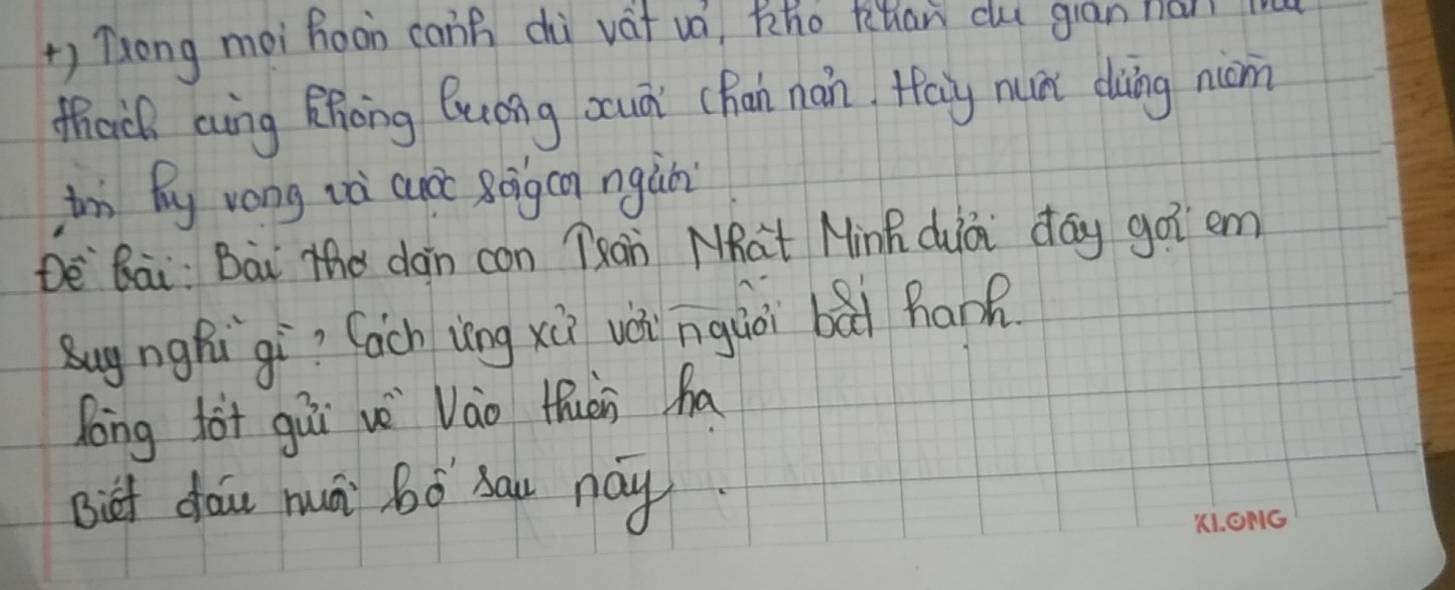 +) Trong mọi hoàn cảnh dù vất vả, khó khăn dù gian nan
thách cũng không buông xuôi chán nản. Hãy nuôi dưỡng niềm
tin hy vọng vào cuộc sống con người
Đề bài: Bài thơ dặn con Trần Nhật Minh dưới đây gợi em
suy nghĩ gì? Cách ứng xử với người bất hạnh.
Lòng tốt gửi về vào thiên hạ
Biết đâu nuôi bố sau này.
KLONG